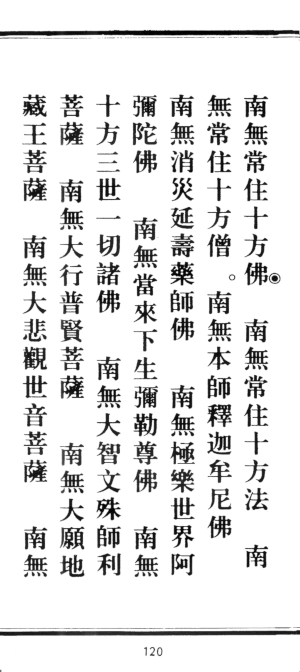 南無常住十方佛◉　南無常住十方法　南
無常住十方僧。南無本師釋迦牟尼佛
南無消災延壽藥師佛　南無極樂世界阿
彌陀佛　南無當來下生彌勒尊佛　南無
十方三世一切諸佛　南無大智文殊師利
菩薩　南無大行普賢菩薩　南無大願地
藏王菩薩　南無大悲觀世音菩薩　南無
120